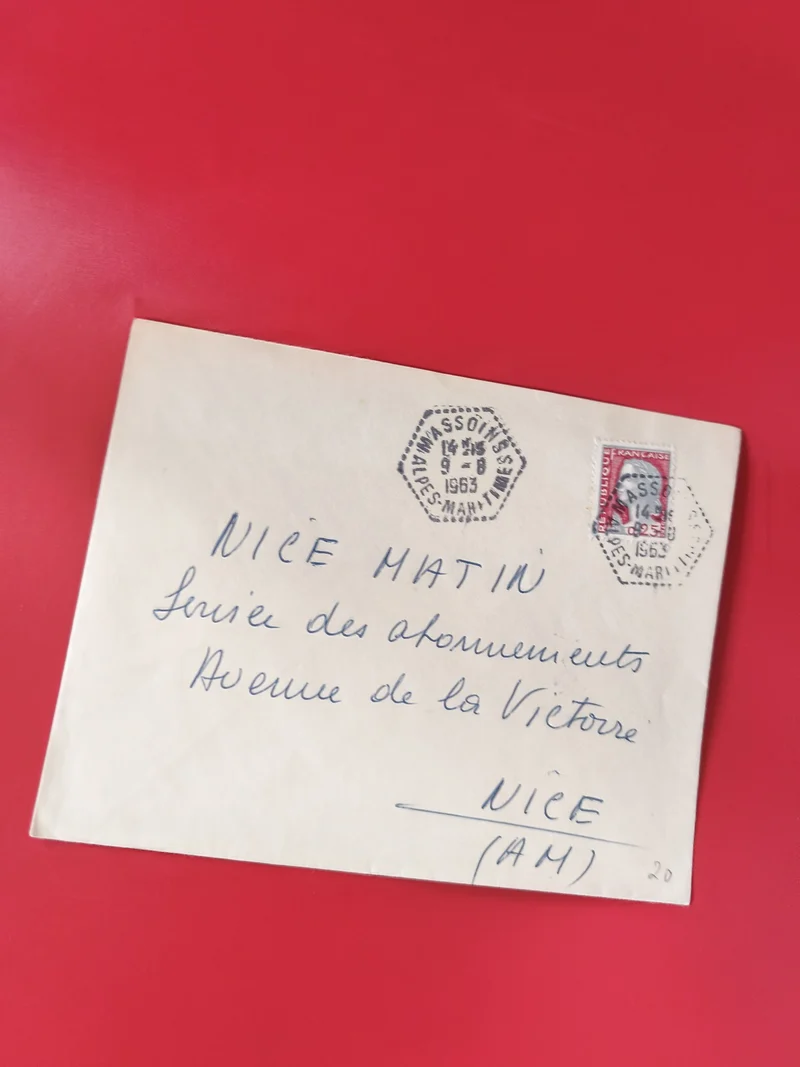 MASSOINS
14 H 15
9 - 8
1963
ALPES-MARITIMES
RÉPUBLIQUE FRANÇAISE
0,25
MASSOINS
14 H 15
9 - 8
1963
ALPES-MARITIMES
NICE MATIN
Service des abonnements
Avenue de la Victoire
NICE
(AM)
20